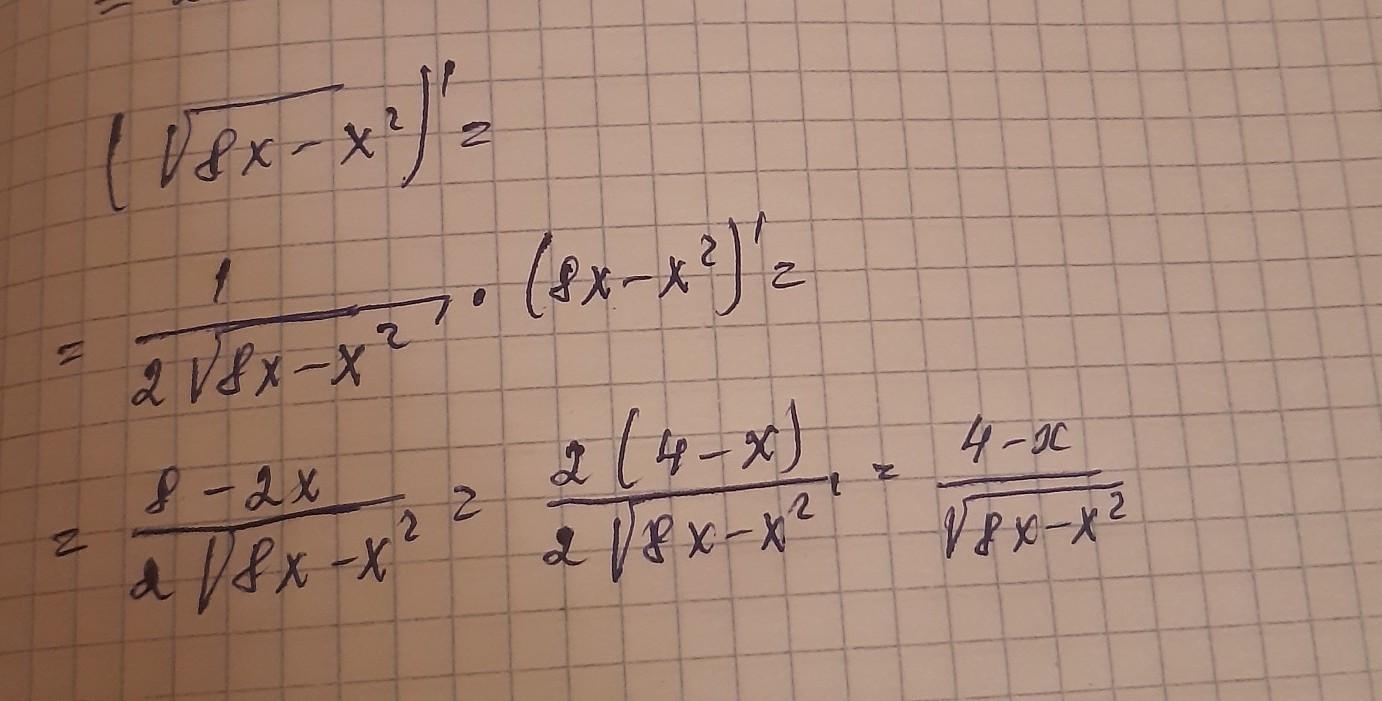 (√(8x-x²))' =
= 1/(2√(8x-x²)) · (8x-x²)' =
= (8-2x)/(2√(8x-x²)) = 2(4-x)/(2√(8x-x²)) = (4-x)/√(8x-x²)